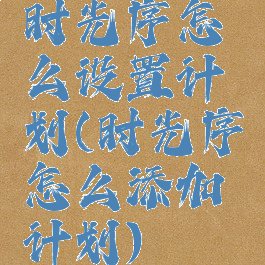 时光序怎
么设置计
划(时光序
怎么添加
计划)